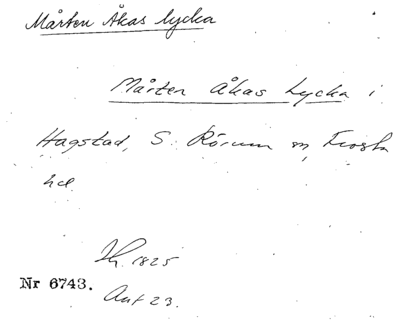 Mårten Åkas lycka
Mårten Åkas Lycka i
Hagstad, S. Rörum sn, Frosta
hd.
1825
Nr 6743.
Ant 23.